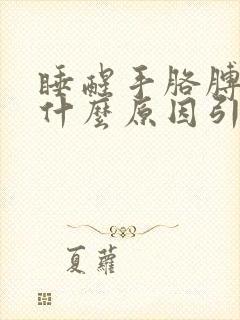 睡醒手胳膊
什麼原因引
夏蘿